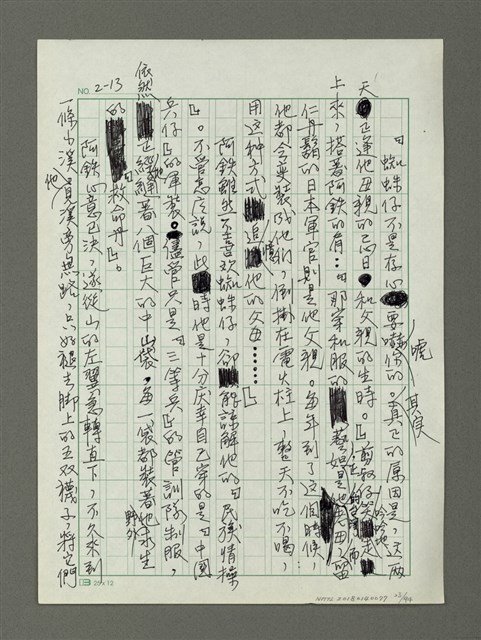 NO. 2-13
「蜘蛛仔不是存心要嚇唬你的。其實真正的原因是,這兩
天,正逢他母親的忌日和父親的生時。」剪釵仔笑吟吟地走
上來,搭著阿鉄的肩:「那穿和服的藝妲是他母親,留
仁丹鬍的日本軍官則是他父親。每年到了這個時候,
他都会变裝成他們,倒掛在電火柱上,整天不吃不喝,
用这种方式追憶他的父母……」
阿鉄雖然不喜欢蜘蛛仔,卻能諒解他的「民族情操
」。不管怎庅説,此時他是十分庆幸自己穿的是「中國
兵仔」的軍裝。儘管只是「三等兵」的管訓隊制服,
依然正經綁著八個巨大的中山袋,每一袋都裝著他野外求生
的救命丹」。
阿鉄心意已決,遂從山的左翼急轉直下,不久來到
一條小溪,他見溪旁無路,只好褪去脚上的五双襪子,將它們
25×12